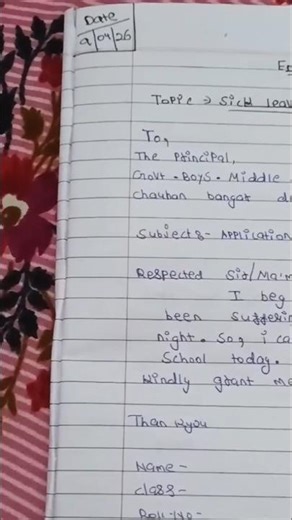 Date
9/04/26
Topic → Sick leav
To,
The Principal,
Govt. Boys. Middle
chauhan bangar
Subject:- Application
Respected Sir/Ma'm
I beg
been suffering
night. So, i ca
School today.
kindly grant me
Than kyou
Name-
class-
Roll-No-